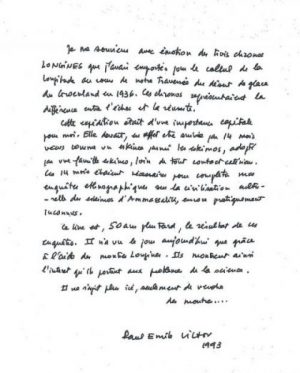 Je me souviens avec émotion des trois chronos
LONGINES que j'avais emportés pour le calcul de la
longitude au cours de notre traversée du désert de glace
du Groenland en 1936. Ces chronos représentaient la
différence entre l'échec et la réussite.
Cette expédition était d'une importance capitale
pour moi. Elle devait, en effet être suivie par 14 mois
vécus comme un eskimo parmi les eskimos, adopté
par une famille eskimo, loin de tout contact extérieur.
Ces 14 mois étaient nécessaires pour compléter mes
enquêtes ethnographiques sur la civilisation
des eskimos d'Ammassalik, encore pratiquement
inconnus.
Ce livre est, 50 ans plus tard, le résultat de ces
enquêtes. Il n'a vu le jour aujourd'hui que grâce
à l'aide des montres Longines. Ils montrent ainsi
l'intérêt qu'ils portent aux problèmes de la science.
Il ne s'agit plus ici, seulement de vendre
des montres....
Paul Emile Victor
1993